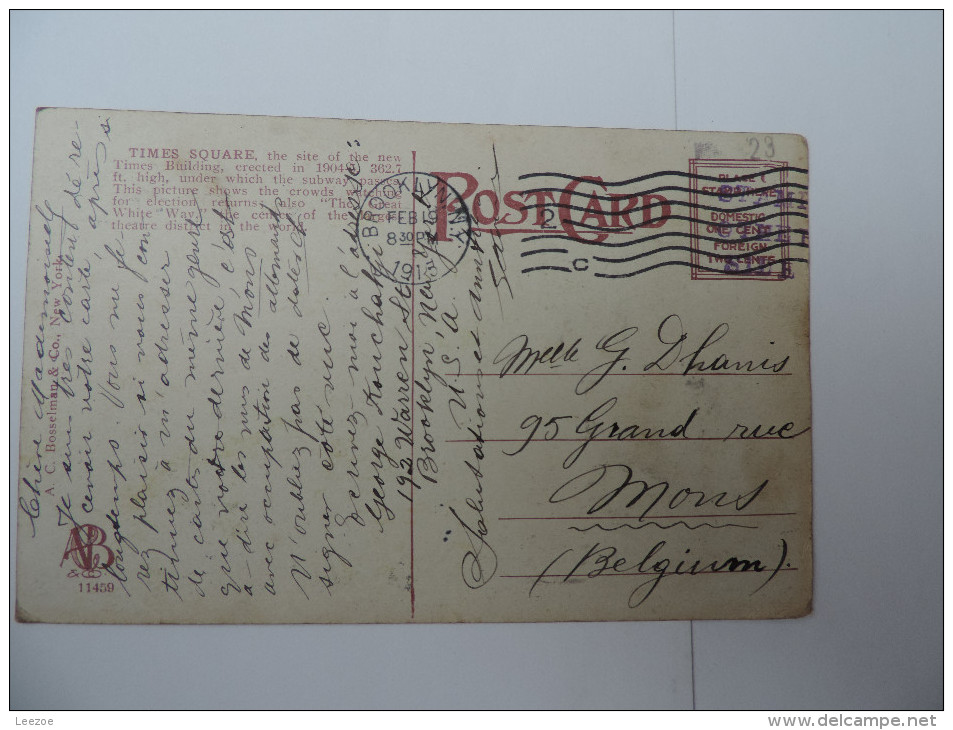 TIMES SQUARE, the site of the new
Times Building, erected in 1904-5, 362.7
ft. high, under which the subway passes.
This picture shows the crowds watching
for election returns, also "The Great
White Way," the center of the largest
theatre district in the world.
A. C. Bosselman & Co., New York
ACB
& Co
11459
POST CARD
BROOKLYN, N.Y.
FEB 19
8 30 P
191
2
C
23
PLACE
STAMP HERE
DOMESTIC
ONE CENT
FOREIGN
TWO CENTS
Chère Mademoiselle
Je suis très content de re-
cevoir votre carte, après si
longtemps. Vous me fe-
rez plaisir si vous con-
tinuez à m'adresser
de cartes du même genre
que votre dernière c'est
a-dire les vues de Mons
avec occupation des allemands
N'oubliez pas de
signer coté vue
Ecrivez moi à l'adresse:
George Kouchakji
192 Warren St.
Brooklyn, New York
U. S. A.
Salutations et
Melle G. Dhanis
95 Grand rue
Mons
(Belgium).
Leezoe
www.delcampe.net